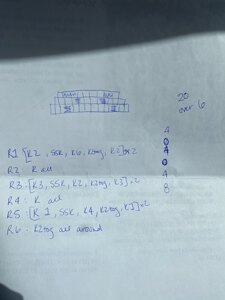 20
over 6
4
0
4
0
4
8
R1 [K2, SSK, K6, K2tog, K2] x 2
R2: K all
R3: [K3, SSK, K2, K2tog, K3] x 2
R4: K all
R5: [K1, SSK, K4, K2tog, K1] x 2
R6: K2tog all around